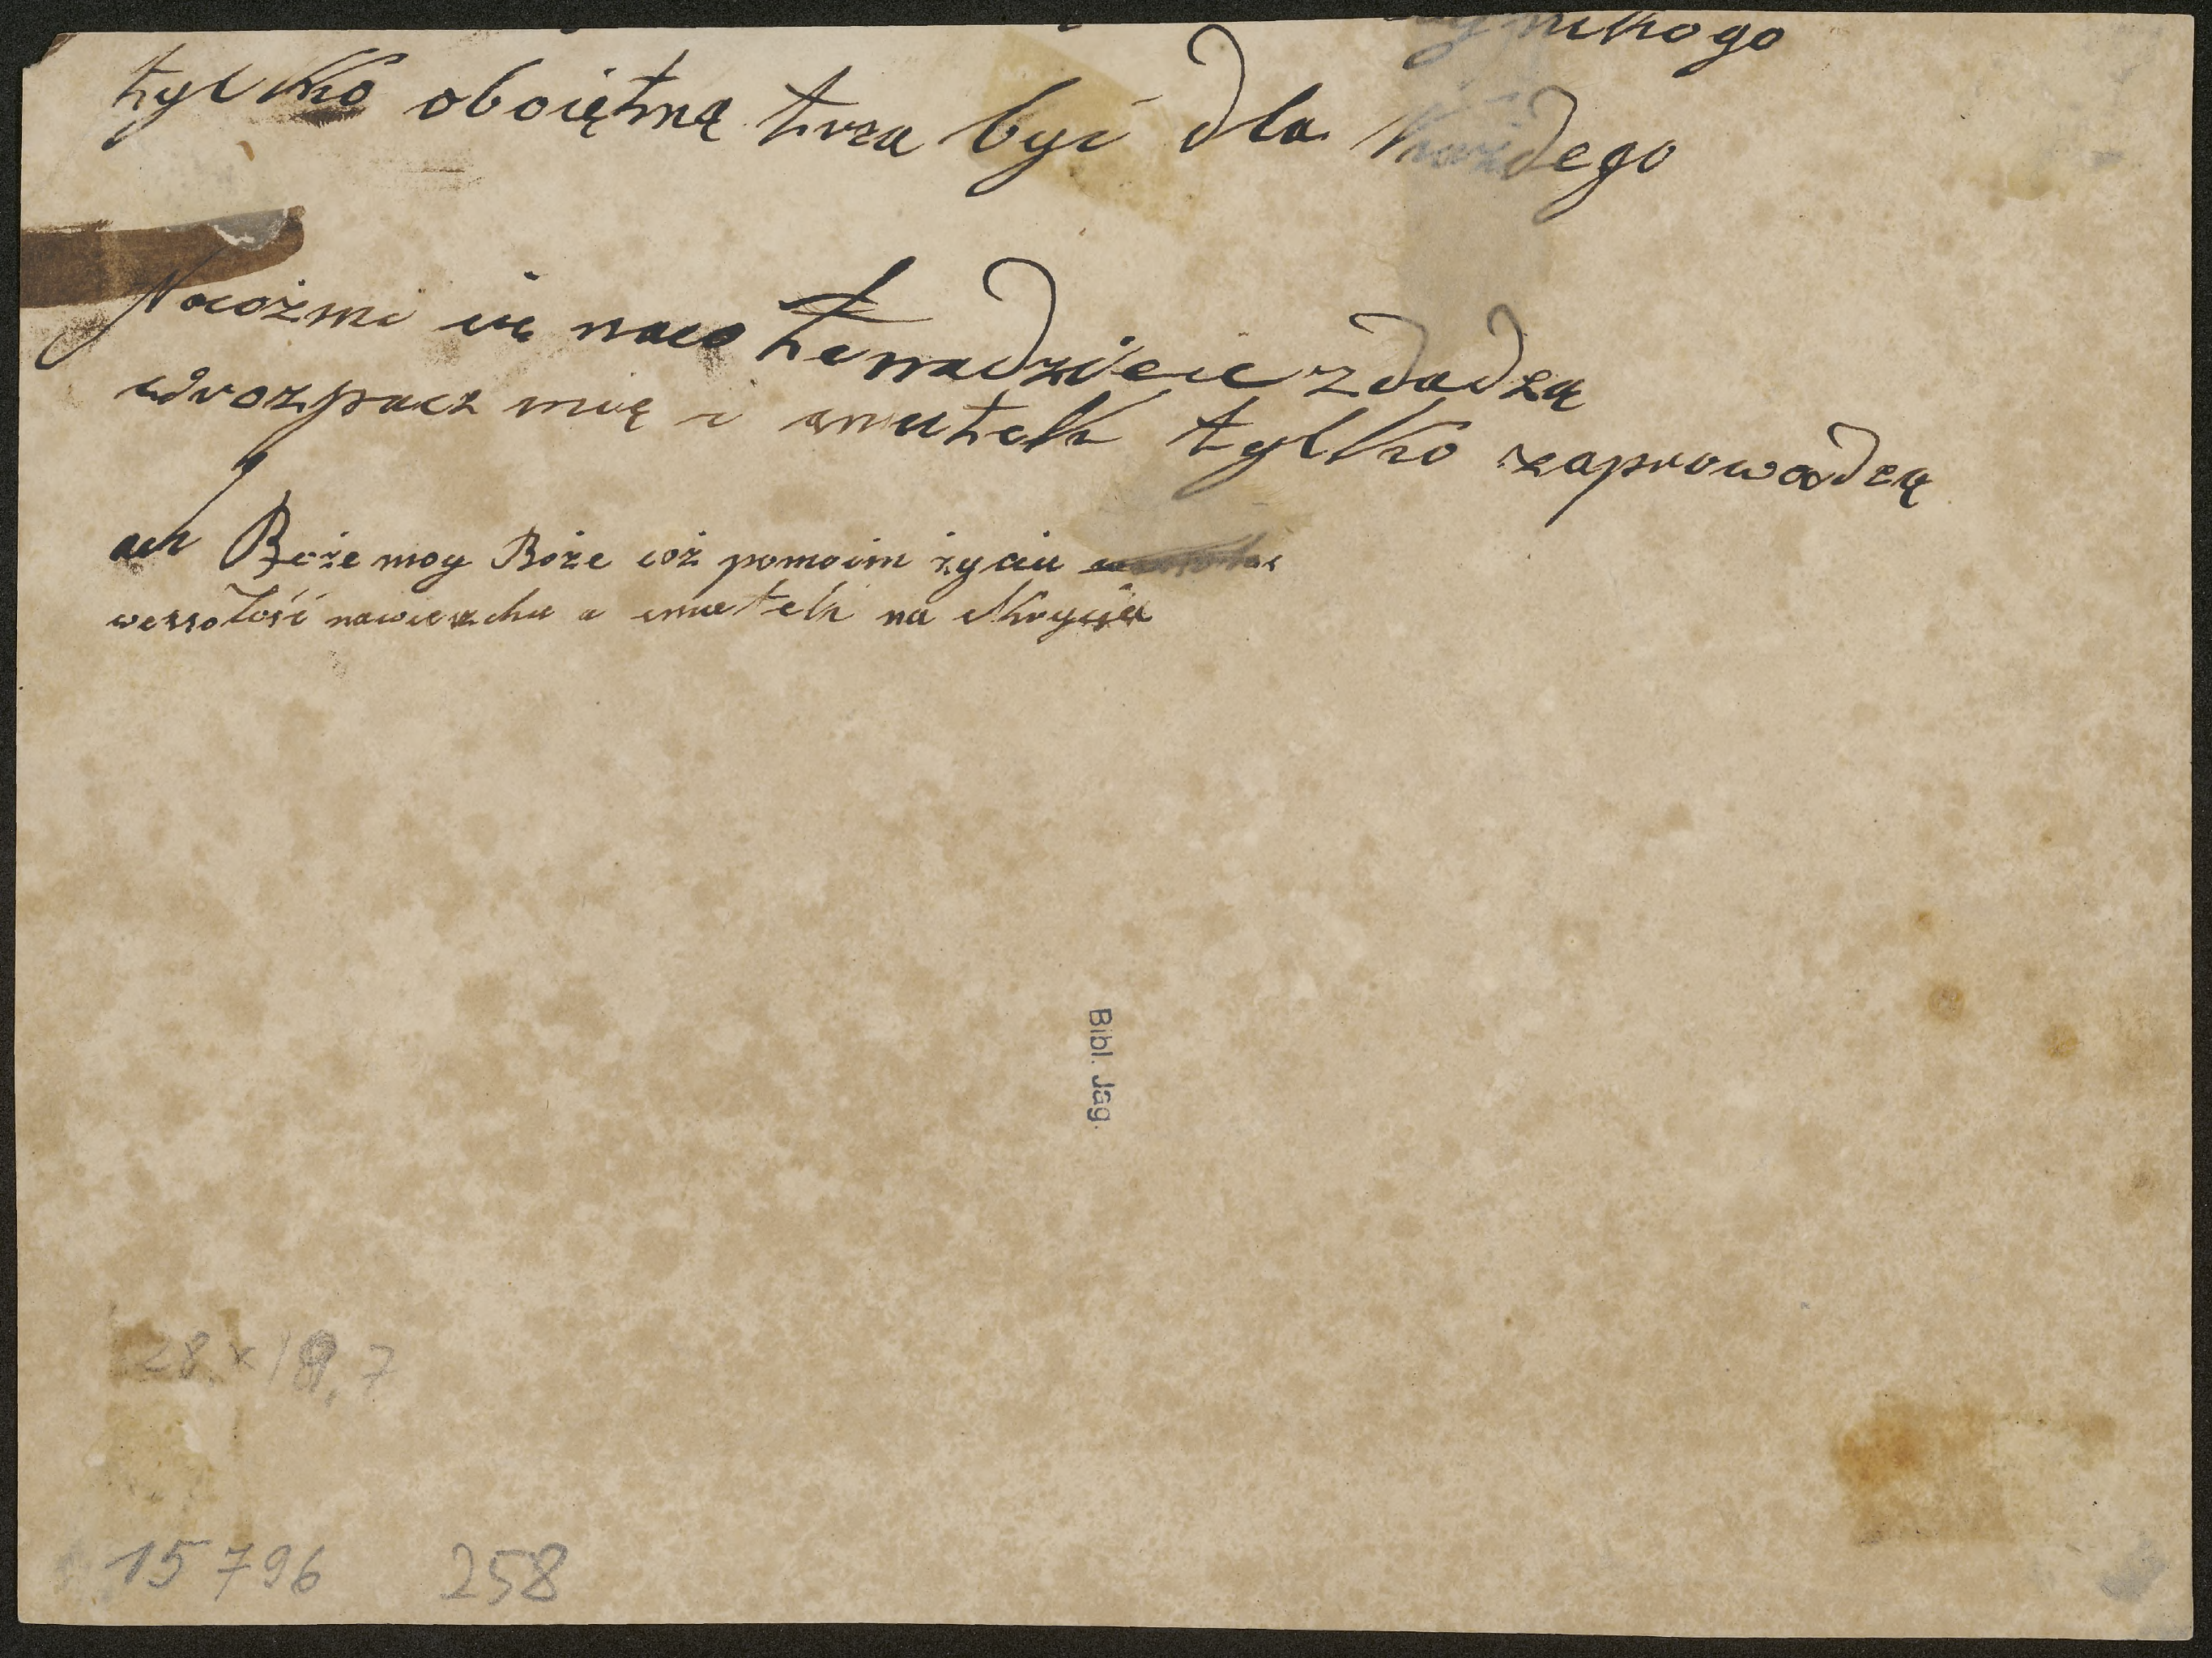 nikogo
tylko oboiętną trza być dla każdego
Nacóżmi się naco te nadzieie zdadzą
wrozpacz mię i smutek tylko zaprowadzą
ach Boże moy Boże cóż pomoim życiu
wessołość nawierzchu a smutek na skryciu
Bibl. Jag.
28 x 19,7
15796 258